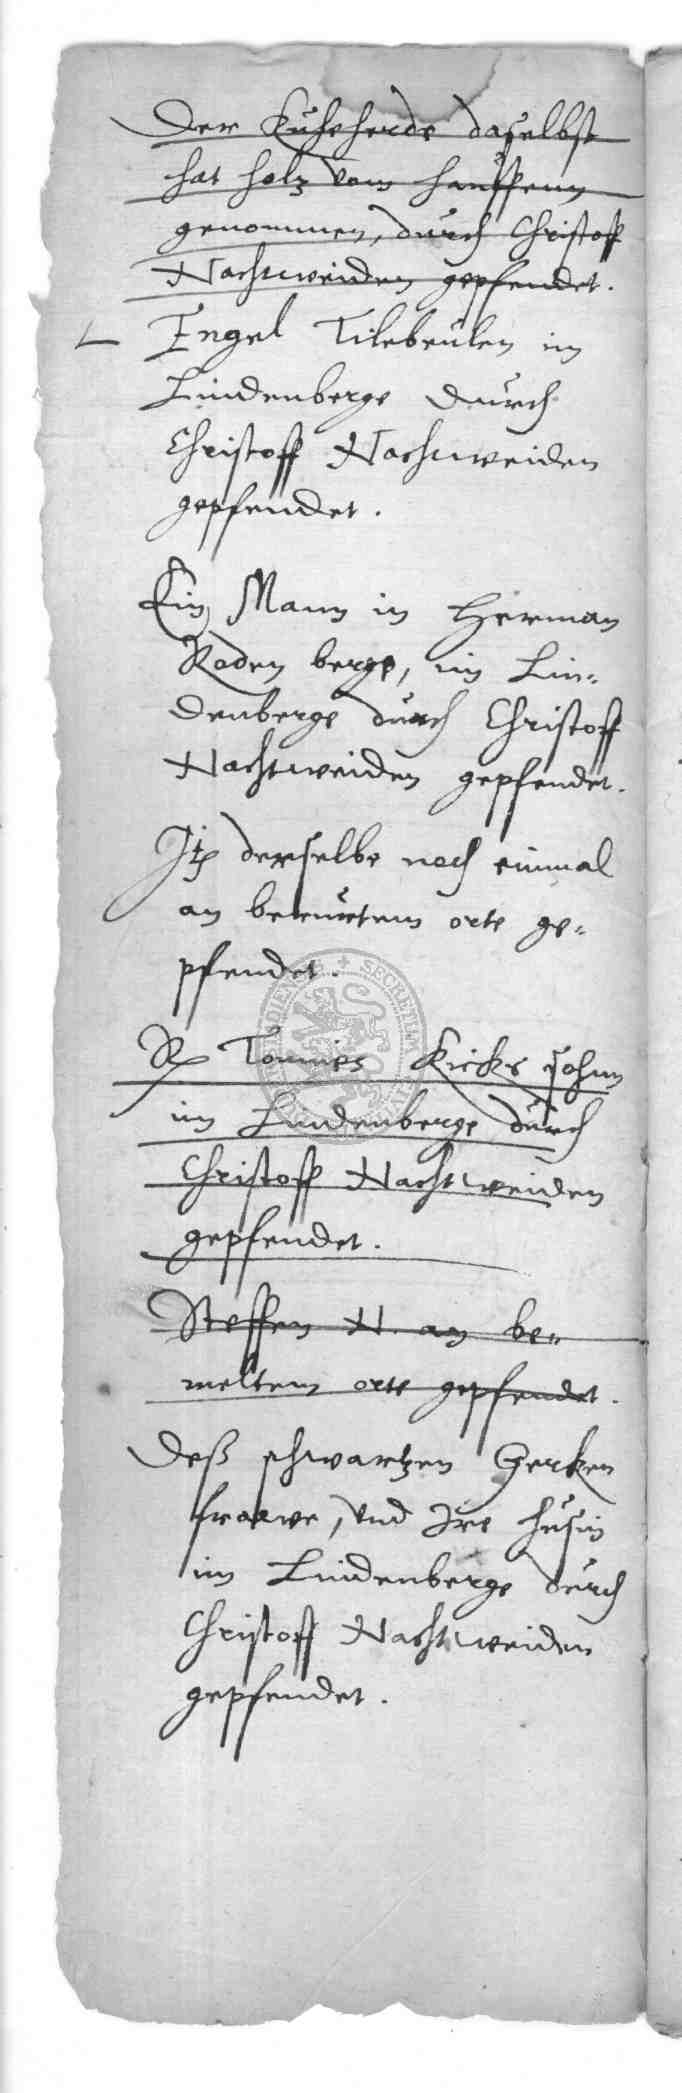 Der Kuheherde daselbst
hat holtz vom hauffenn
genommen, durch Christoff
Nachtweiden gepfendet.
Engel Tilebeulen im
Lindenberge durch
Christoff Nachtweiden
gepfendet.
Ein Mann in Herman
Roden berge, im Lin-
denberge durch Christoff
Nachtweiden gepfendet.
It derselbe noch einmal
an berurtem orte ge-
pfendet.
Tonnies Kicks sohnn
im Lindenberge durch
Christoff Nachtweiden
gepfendet.
Steffen N. an be-
meltem orte gepfendet.
Deß schwartzen Gerken
frawe, vnd Ire
im Lindenberge durch
Christoff Nachtweiden
gepfendet.
SECRETUM